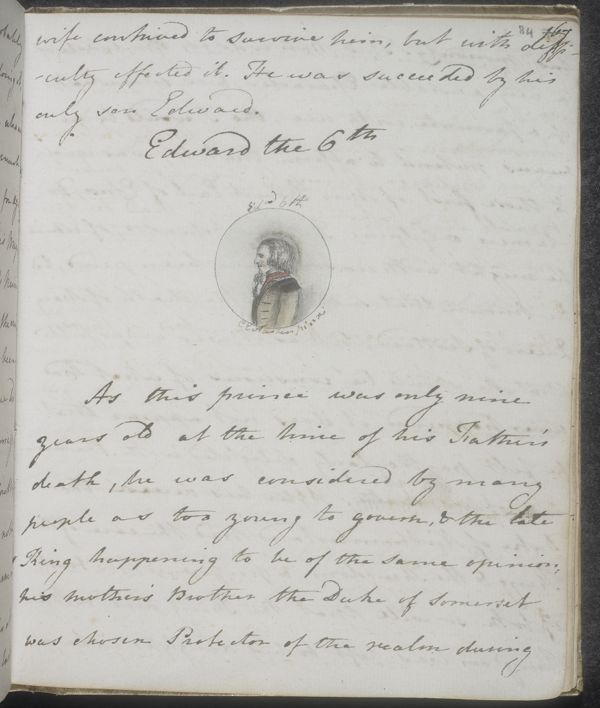 84 167
wife contrived to survive him, but with diffi-
-culty effected it. He was succeeded by his
only son Edward.
Edward the 6th
Edd 6th
C E Austen pinxit
As this prince was only nine
years old at the time of his Father's
death, he was considered by many
people as too young to govern, & the late
King happening to be of the same opinion,
his mother's Brother the Duke of Somerset
was chosen Protector of the realm during